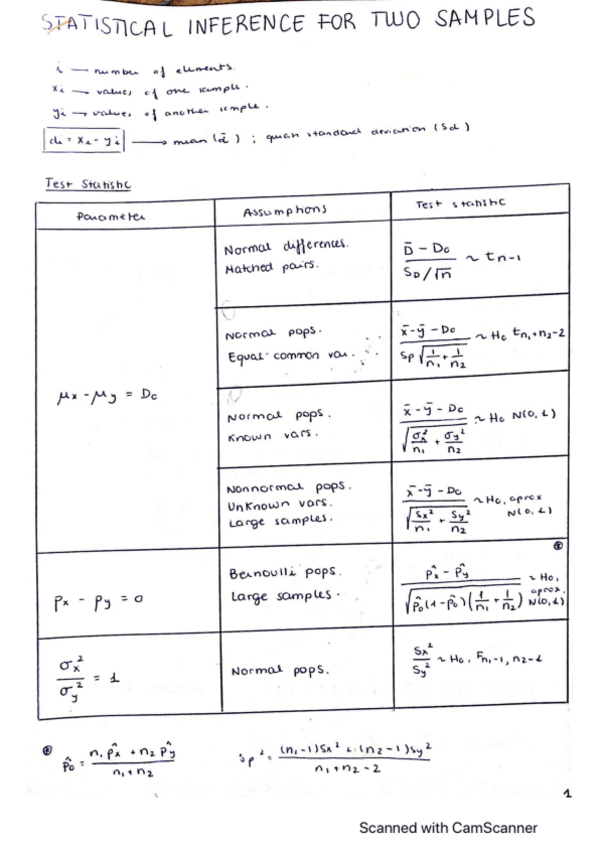 STATISTICAL INFERENCE FOR TWO SAMPLES
i — number of elements.
xi → values of one sample.
yi → values of another sample.
di = xi - yi → mean (d̄) ; quasi standard deviation (Sd)
Test Statistic
Parameter
Assumptions
Test statistic
μx - μy = D₀
Normal differences.
Matched pairs.
D̄ - D₀ / (SD/√n) ~ tn-1
Normal pops.
Equal common var.
x̄ - ȳ - D₀ / (Sp √(1/n₁ + 1/n₂)) ~ H₀ tn₁+n₂-2
Normal pops.
Known vars.
x̄ - ȳ - D₀ / √(σx²/n₁ + σy²/n₂) ~ H₀ N(0,1)
Nonnormal pops.
Unknown vars.
Large samples.
x̄ - ȳ - D₀ / √(Sx²/n₁ + Sy²/n₂) ~ H₀, aprox N(0,1)
px - py = 0
Bernoulli pops.
Large samples.
p̂x - p̂y / √(p̂₀(1-p̂₀)(1/n₁ + 1/n₂)) ~ H₀, aprox. N(0,1)
σx²/σy² = 1
Normal pops.
Sx²/Sy² ~ H₀, Fn₁-1, n₂-1
p̂₀ = (n₁p̂x + n₂p̂y) / (n₁+n₂)
Sp² = ((n₁-1)Sx² + (n₂-1)Sy²) / (n₁+n₂-2)
1
Scanned with CamScanner